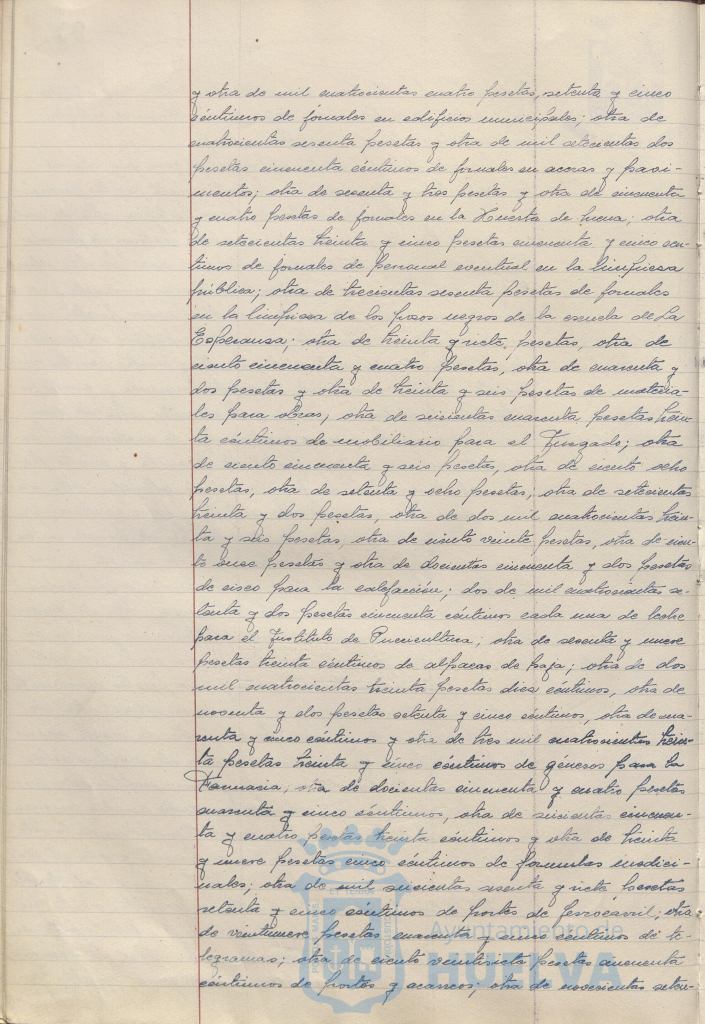 y otra de mil cuatrocientas cuatro pesetas, setenta y cinco
céntimos de jornales en edificios municipales; otra de
cuatrocientas sesenta pesetas y otra de mil setecientas dos
pesetas cincuenta céntimos de jornales en aceras y pavi-
mentos; otra de sesenta y tres pesetas y otra de cincuenta
y cuatro pesetas de jornales en la Huerta de Mena; otra
de setecientas treinta y cinco pesetas cincuenta y cinco cén-
timos de jornales de personal eventual en la limpieza
pública; otra de trecientas sesenta pesetas de jornales
en la limpieza de los pozos negros de la escuela de La
Esperanza; otra de treinta y siete pesetas, otra de
ciento cincuenta y cuatro pesetas, otra de cuarenta y
dos pesetas y otra de treinta y seis pesetas de materia-
les para obras; otra de seiscientas cuarenta pesetas trein-
ta céntimos de mobiliario para el Juzgado; otra
de ciento cincuenta y seis pesetas, otra de ciento ocho
pesetas, otra de setenta y ocho pesetas, otra de setecientas
treinta y dos pesetas, otra de dos mil cuatrocientas trein-
ta y seis pesetas, otra de ciento veinte pesetas, otra de cien-
to once pesetas y otra de docientas cincuenta y dos pesetas
de cisco para la calefacción; dos de mil cuatrocientas se-
tenta y dos pesetas cincuenta céntimos cada una de leche
para el Instituto de Puericultura; otra de sesenta y nueve
pesetas treinta céntimos de alpacas de paja; otra de dos
mil cuatrocientas treinta pesetas diez céntimos, otra de
noventa y dos pesetas setenta y cinco céntimos, otra de cua-
renta y cinco céntimos y otra de tres mil cuatrocientas trein-
ta pesetas treinta y cinco céntimos de géneros para la
Farmacia; otra de docientas cincuenta y cuatro pesetas
cuarenta y cinco céntimos, otra de seiscientas cincuen-
ta y cuatro pesetas treinta céntimos y otra de treinta
y nueve pesetas cinco céntimos de formulas medici-
nales; otra de mil seiscientas sesenta y siete pesetas
setenta y cinco céntimos de portes de ferrocarril; otra
de veintinueve pesetas cuarenta y cinco céntimos de te-
legramas; otra de ciento veintisiete pesetas cincuenta
céntimos de portes y acarreos; otra de novecientas seten-
Ayuntamiento de
HUELVA